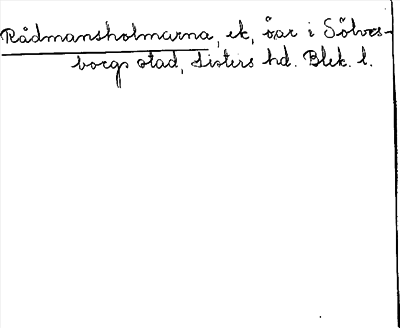 Rådmansholmarna, ek, öar i Sölves-
borgs stad, Listers hd. Blek. l.